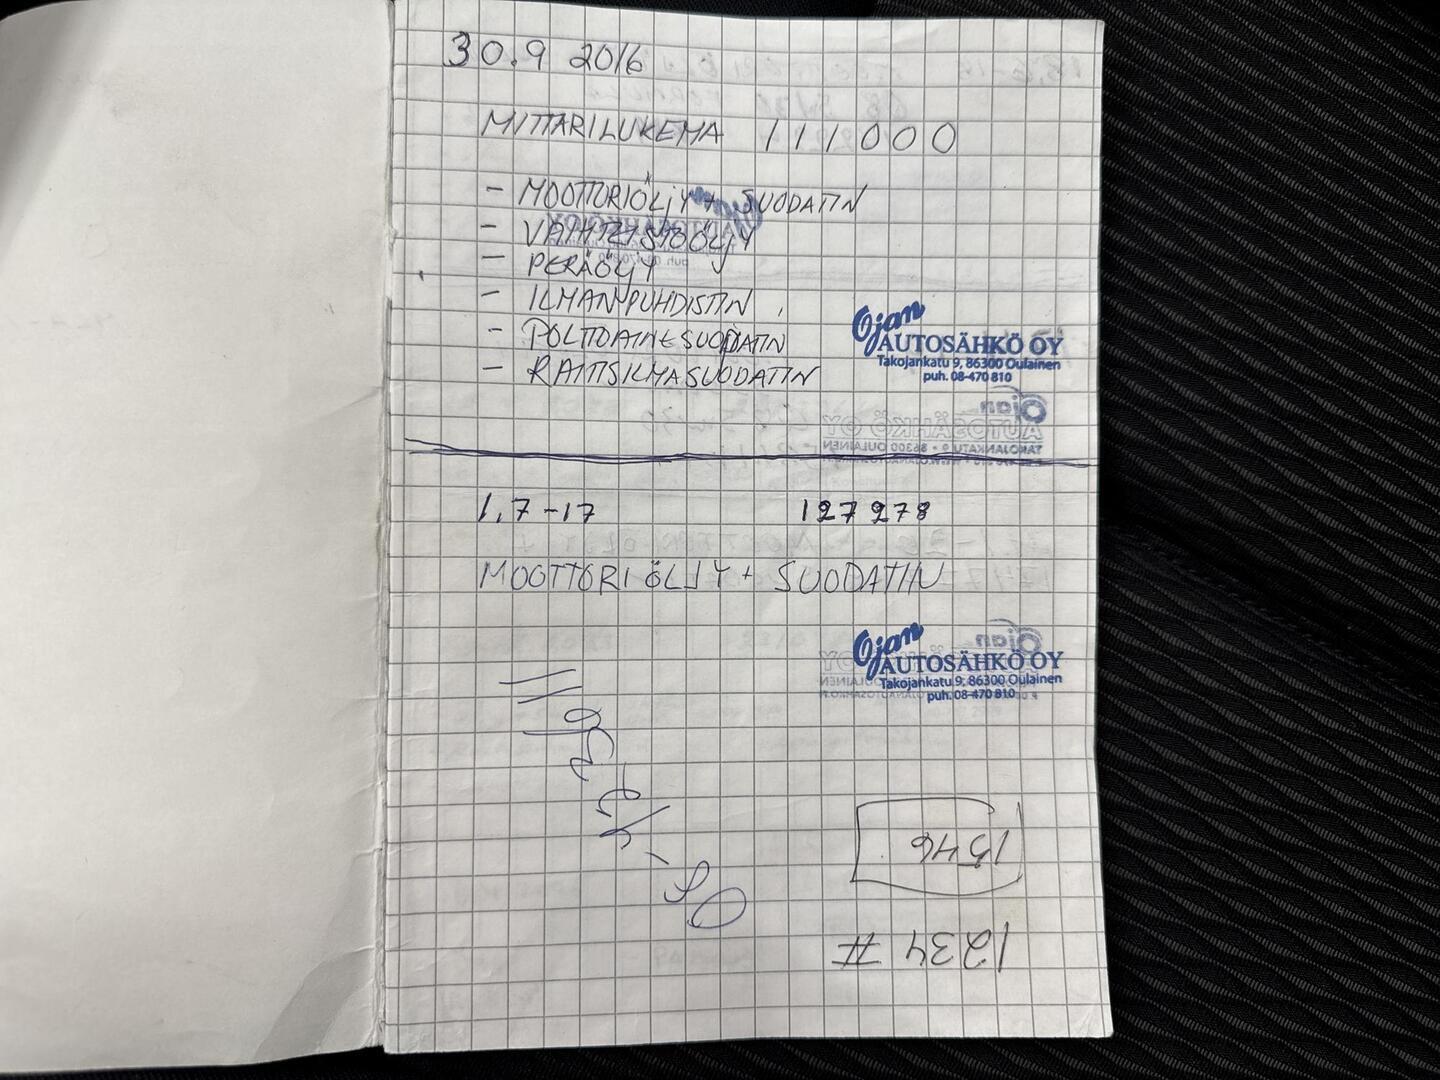 30.9 2016
MITTARILUKEMA 111000
- MOOTTORIÖLJY + SUODATIN
- VAIHTEISTOÖLJY
- PERÄÖLJY
- ILMANPUHDISTIN
- POLTTOAINESUODATIN
- RAITISILMASUODATIN
Ojan
AUTOSÄHKÖ OY
Takojankatu 9, 86300 Oulainen
puh. 08-470 810
1.7-17 127 278
MOOTTORIÖLJY + SUODATIN
Ojan
AUTOSÄHKÖ OY
Takojankatu 9, 86300 Oulainen
puh. 08-470 810
1546
1234 #